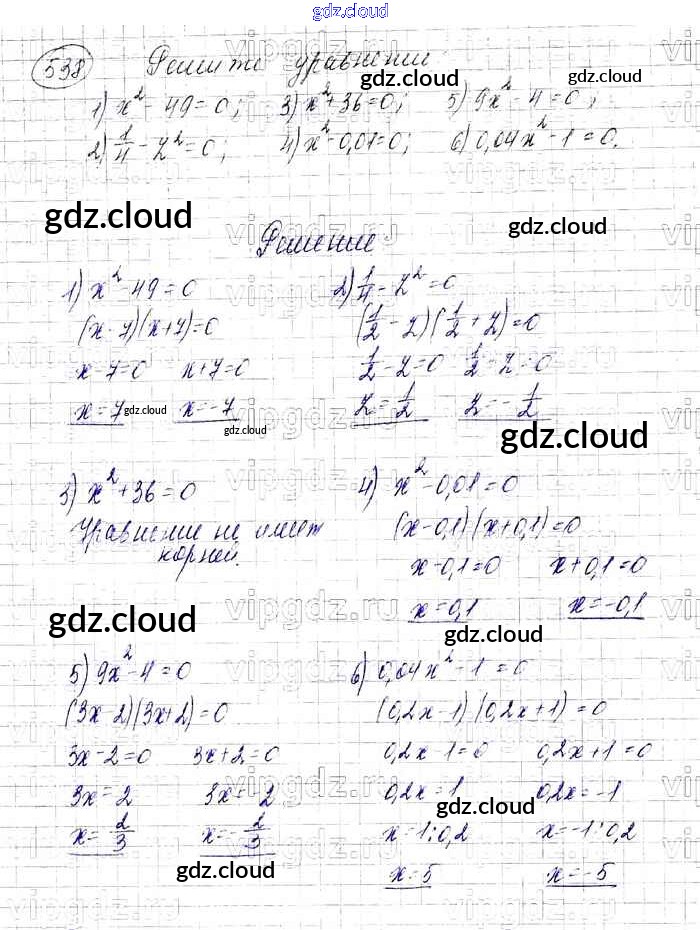 gdz.cloud
538 Решите уравнение
1) x² - 49 = 0; 3) x² + 36 = 0; 5) 9x² - 4 = 0;
2) 1/4 - z² = 0; 4) x² - 0,01 = 0; 6) 0,04x² - 1 = 0.
gdz.cloud
gdz.cloud
gdz.cloud
gdz.cloud
Решение
1) x² - 49 = 0
(x - 7)(x + 7) = 0
x - 7 = 0 x + 7 = 0
x = 7 x = -7
gdz.cloud
gdz.cloud
2) 1/4 - z² = 0
(1/2 - z)(1/2 + z) = 0
1/2 - z = 0 1/2 - z = 0
z = 1/2 z = - 1/2
gdz.cloud
3) x² + 36 = 0
Уравнение не имеет
корней.
gdz.cloud
4) x² - 0,01 = 0
(x - 0,1)(x + 0,1) = 0
x - 0,1 = 0 x + 0,1 = 0
x = 0,1 x = -0,1
gdz.cloud
5) 9x² - 4 = 0
(3x - 2)(3x + 2) = 0
3x - 2 = 0 3x + 2 = 0
3x = 2 3x = -2
x = 2/3 x = - 2/3
gdz.cloud
6) 0,04x² - 1 = 0
(0,2x - 1)(0,2x + 1) = 0
0,2x - 1 = 0 0,2x + 1 = 0
0,2x = 1 0,2x = -1
gdz.cloud
x = 1 : 0,2 x = -1 : 0,2
x = 5 x = -5
vipgdz.ru